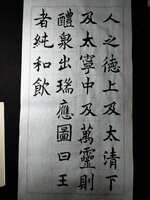 人之德上及太清下
及太寧中及萬靈則
醴泉出瑞應圖曰王
者純和飲